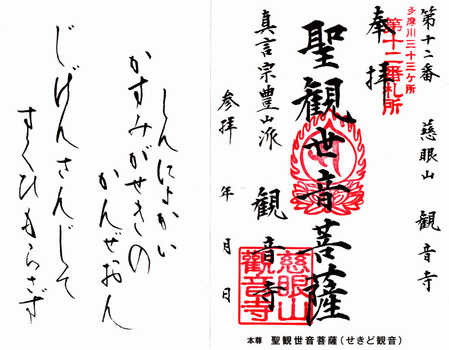 第十二番 慈眼山 観音寺
多摩川三十三ヶ所
第十二番札所
奉拝
聖観世音菩薩
真言宗豊山派 観音寺
慈眼山
觀音寺
参拝 年 月 日
本尊 聖観世音菩薩（せきど観音）
しんによかい
かすみがせきの
かんぜおん
じげんさんじて
すくひもらさず